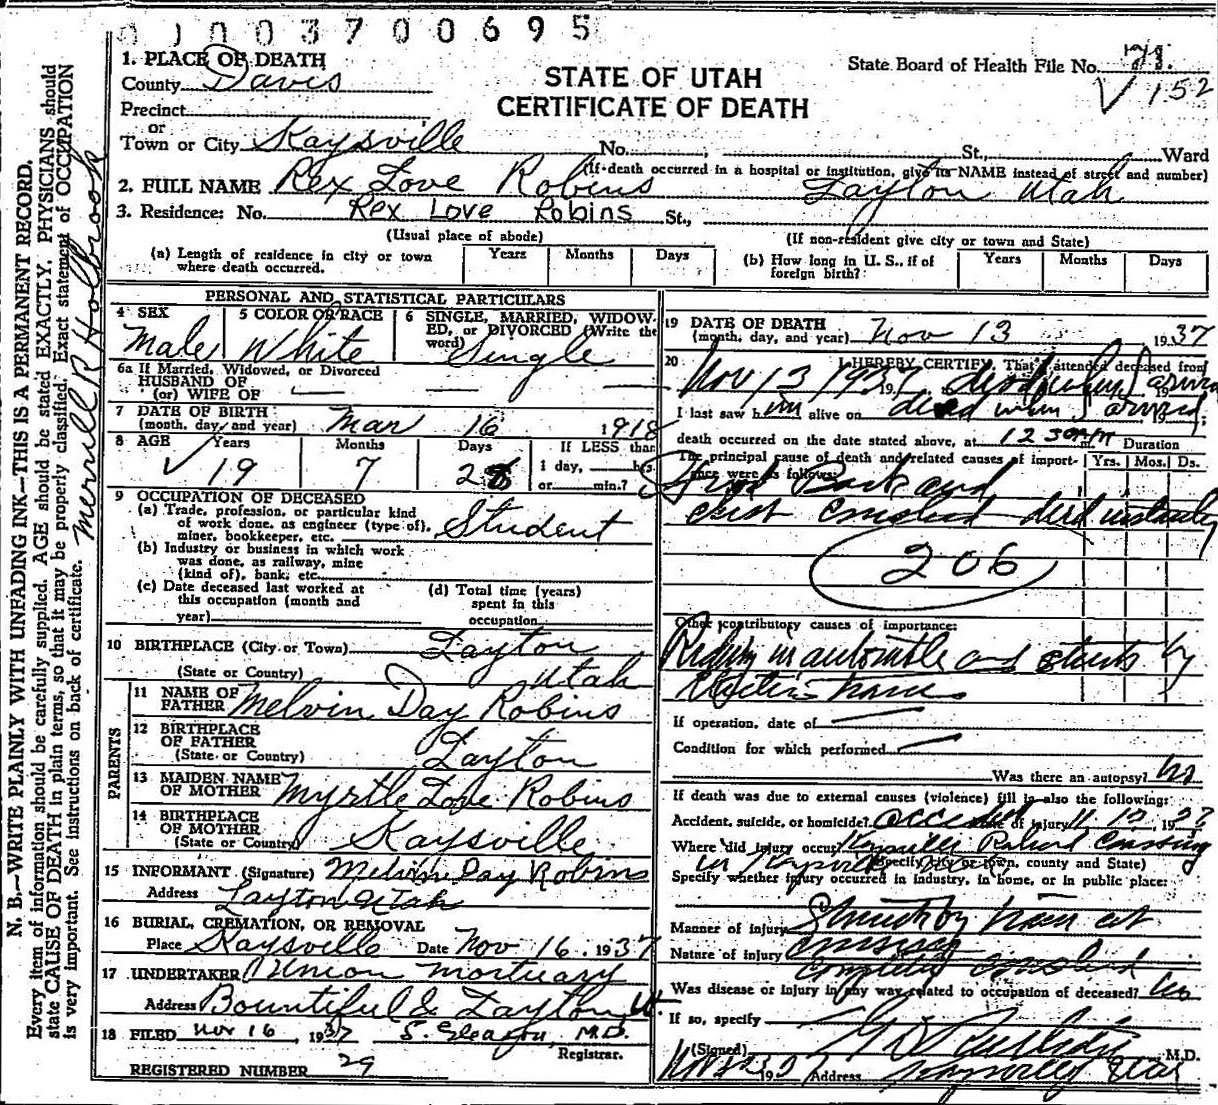 0 0 0 3 7 0 0 6 9 5
1. PLACE OF DEATH
County Davis
STATE OF UTAH
CERTIFICATE OF DEATH
State Board of Health File No.
152
Precinct
or
Town or City Kaysville No. , St., Ward
(If death occurred in a hospital or institution, give its NAME instead of street and number)
2. FULL NAME Rex Love Robins Layton Utah
3. Residence: No. Rex Love Robins St.,
(Usual place of abode) (If non-resident give city or town and State)
(a) Length of residence in city or town where death occurred. Years Months Days
(b) How long in U. S., if of foreign birth? Years Months Days
PERSONAL AND STATISTICAL PARTICULARS
4 SEX Male
5 COLOR OR RACE White
6 SINGLE, MARRIED, WIDOWED, or DIVORCED (Write the word) Single
6a If Married, Widowed, or Divorced
HUSBAND OF
(or) WIFE OF
7 DATE OF BIRTH
(month, day, and year) Mar 16 1918
8 AGE Years Months Days If LESS than
19 7 1 day, hrs.
or min.?
9 OCCUPATION OF DECEASED
(a) Trade, profession, or particular kind
of work done, as engineer (type of),
miner, bookkeeper, etc. Student
(b) Industry or business in which work
was done, as railway, mine
(kind of), bank, etc.
(c) Date deceased last worked at
this occupation (month and
year)
(d) Total time (years)
spent in this
occupation
10 BIRTHPLACE (City or Town) Layton
(State or Country) Utah
PARENTS
11 NAME OF
FATHER Melvin Day Robins
12 BIRTHPLACE
OF FATHER
(State or Country) Layton
13 MAIDEN NAME
OF MOTHER Myrtle Love Robins
14 BIRTHPLACE
OF MOTHER
(State or Country) Kaysville
15 INFORMANT (Signature) Melvin Day Robins
Address Layton Utah
16 BURIAL, CREMATION, OR REMOVAL
Place Kaysville Date Nov 16, 1937
17 UNDERTAKER Union Mortuary
Address Bountiful & Layton Ut.
18 FILED Nov 16, 1937 S. Gleason, M.D.
Registrar.
REGISTERED NUMBER 29
19 DATE OF DEATH
(month, day, and year) Nov 13 1937
20 I HEREBY CERTIFY, That I attended deceased from
Nov 13 1937, died when I arrived 19
I last saw him alive on dead when I arrived,
death occurred on the date stated above, at 12 30 AM Duration
The principal cause of death and related causes of importance were as follows: Yrs. Mos. Ds.
and
chest crushed died instantly
206
Other contributory causes of importance:
Riding in automobile and struck by
train
If operation, date of
Condition for which performed
Was there an autopsy? No
If death was due to external causes (violence) fill in also the following:
Accident, suicide, or homicide? accident Date of injury 11.13, 1937
Where did injury occur? Kaysville Railroad Crossing
in Kaysville
(Specify city or town, county and State)
Specify whether injury occurred in industry, in home, or in public place:
Manner of injury Struck by train at
crossing
Nature of injury completely crushed
Was disease or injury in any way related to occupation of deceased? No
If so, specify
(Signed) M.D.
Address Kaysville Utah
N. B.—WRITE PLAINLY WITH UNFADING INK—THIS IS A PERMANENT RECORD.
Every item of information should be carefully supplied. AGE should be stated EXACTLY. PHYSICIANS should
state CAUSE OF DEATH in plain terms, so that it may be properly classified. Exact statement of OCCUPATION
is very important. See instructions on back of certificate.
Merrill R Holbrook